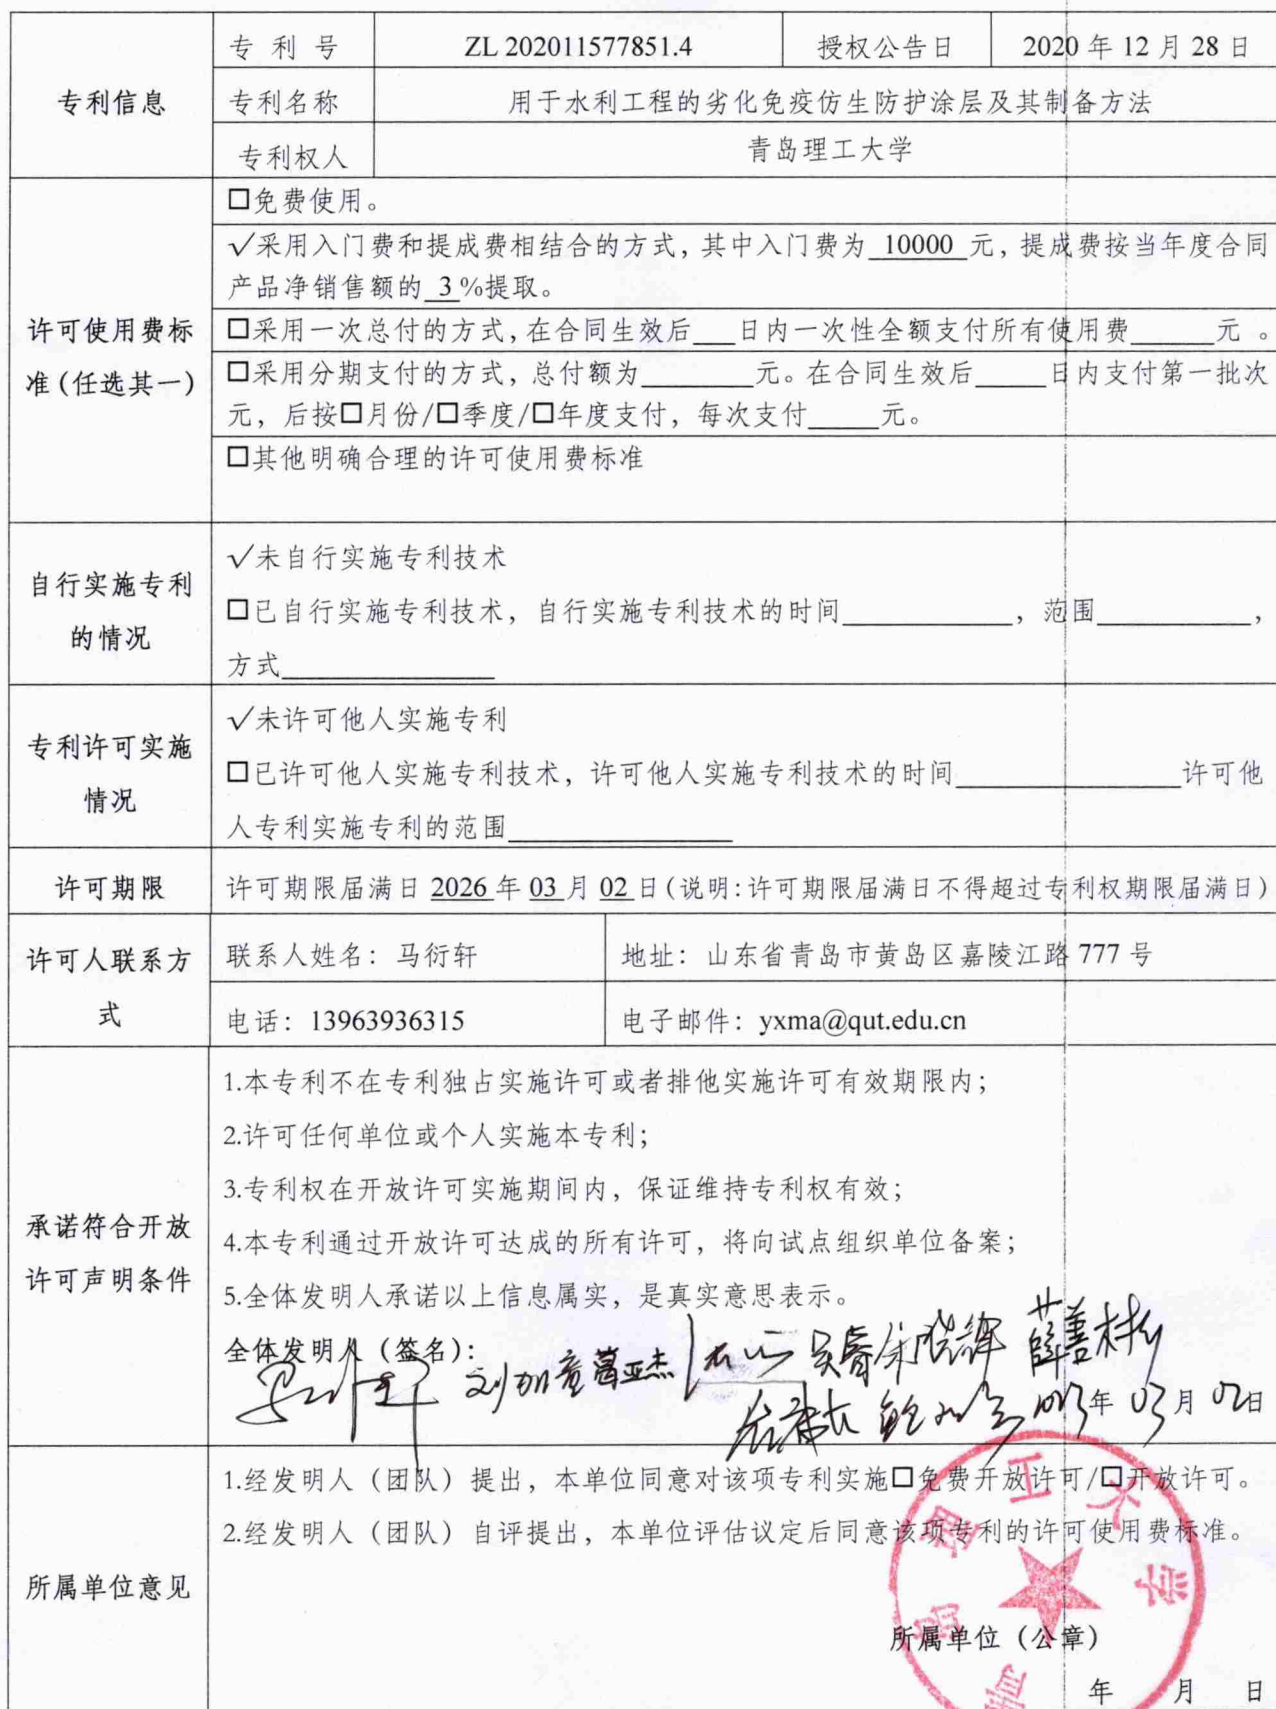 专利信息
专 利 号 ZL 202011577851.4 授权公告日 2020 年 12 月 28 日
专利名称 用于水利工程的劣化免疫仿生防护涂层及其制备方法
专利权人 青岛理工大学
许可使用费标准(任选其一)
□免费使用。
√采用入门费和提成费相结合的方式，其中入门费为 10000 元，提成费按当年度合同
产品净销售额的 3 %提取。
□采用一次总付的方式，在合同生效后___日内一次性全额支付所有使用费______元 。
□采用分期支付的方式，总付额为________元。在合同生效后_____日内支付第一批次
元，后按□月份/□季度/□年度支付，每次支付_____元。
□其他明确合理的许可使用费标准
自行实施专利
的情况
√未自行实施专利技术
□已自行实施专利技术，自行实施专利技术的时间____________，范围___________，
方式_______________
专利许可实施
情况
√未许可他人实施专利
□已许可他人实施专利技术，许可他人实施专利技术的时间________________许可他
人专利实施专利的范围________________
许可期限 许可期限届满日 2026 年 03 月 02 日(说明:许可期限届满日不得超过专利权期限届满日)
许可人联系方
式
联系人姓名：马衍轩 地址：山东省青岛市黄岛区嘉陵江路 777 号
电话：13963936315 电子邮件：yxma@qut.edu.cn
承诺符合开放
许可声明条件
1.本专利不在专利独占实施许可或者排他实施许可有效期限内；
2.许可任何单位或个人实施本专利；
3.专利权在开放许可实施期间内，保证维持专利权有效；
4.本专利通过开放许可达成的所有许可，将向试点组织单位备案；
5.全体发明人承诺以上信息属实，是真实意思表示。
全体发明人（签名）：
刘加童 葛亚杰 吴睿 徐晓锋 薛善彬
年 03 月 02 日
所属单位意见
1.经发明人（团队）提出，本单位同意对该项专利实施□免费开放许可/□开放许可。
2.经发明人（团队）自评提出，本单位评估议定后同意该项专利的许可使用费标准。
青岛理工大学
所属单位（公章）
年 月 日